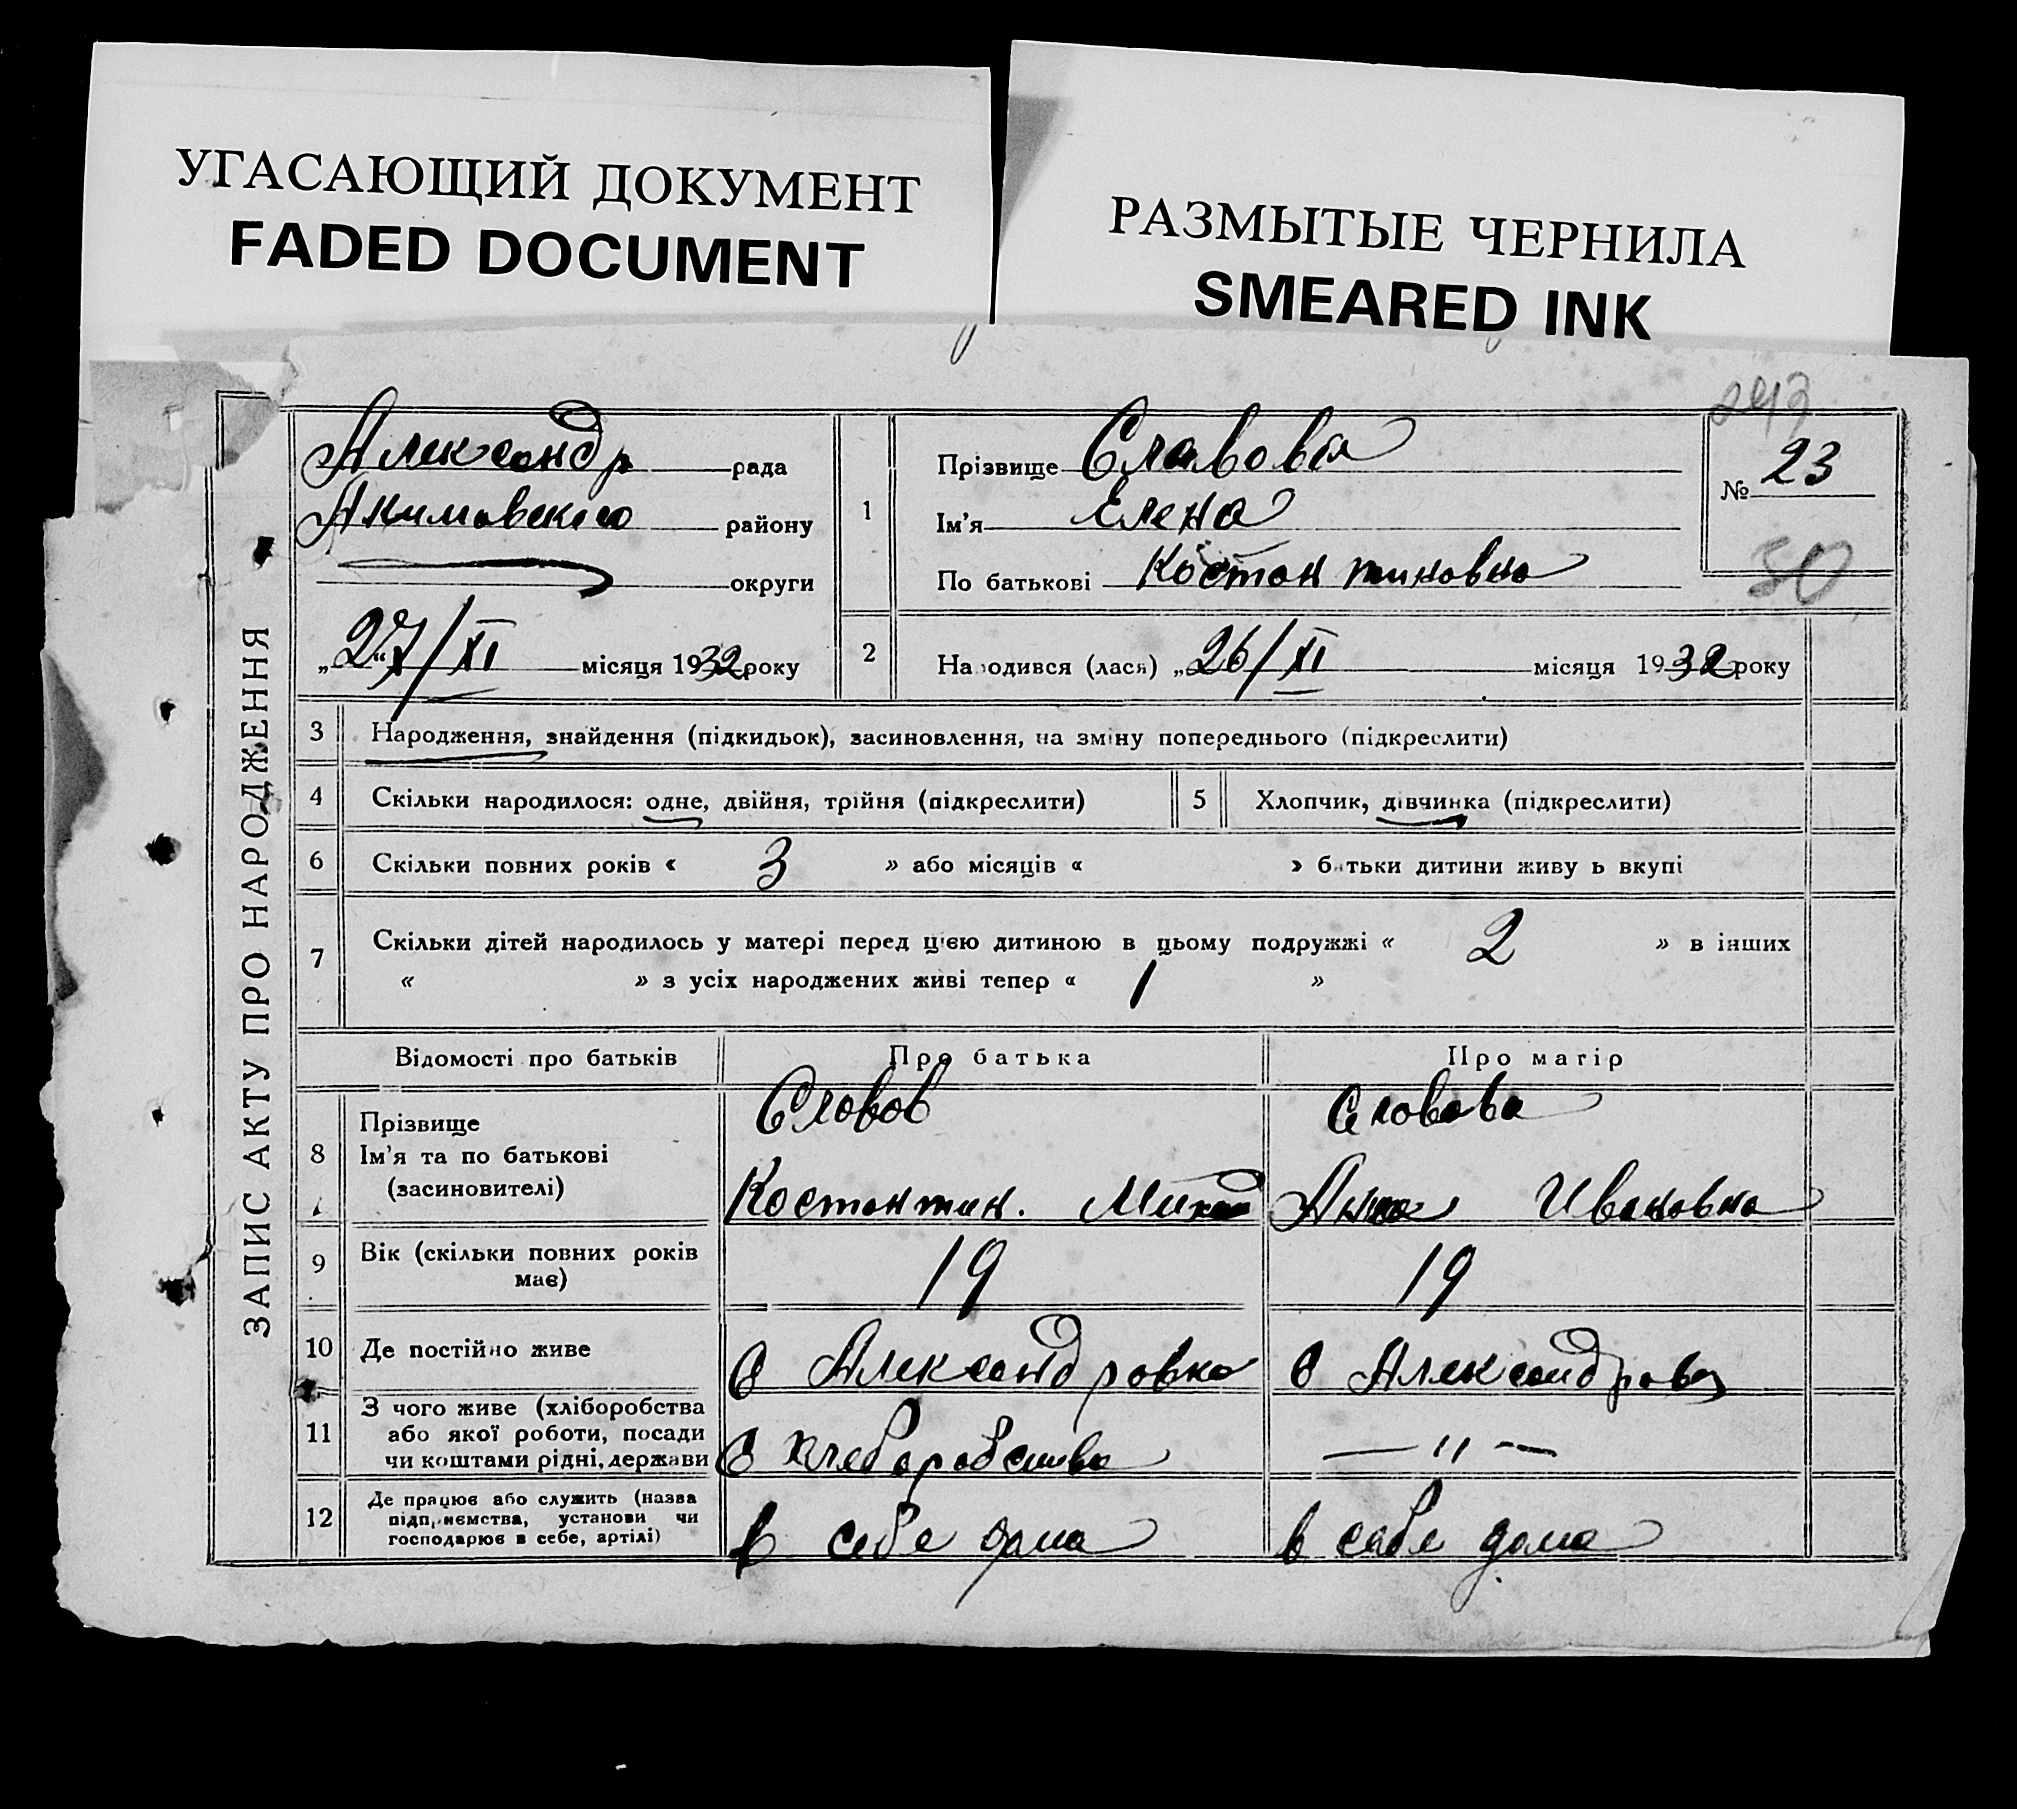 УГАСАЮЩИЙ ДОКУМЕНТ
FADED DOCUMENT
РАЗМЫТЫЕ ЧЕРНИЛА
SMEARED INK
ЗАПИС АКТУ ПРО НАРОДЖЕННЯ
Александр рада
Акимовского району
округи
„27“/XI місяця 1932 року
1
Прізвище Славова
Ім'я Елена
По батькові Костантиновна
243
№ 23
50
2 Народився (лася) „26/XI місяця 1932 року
3 Народження, знайдення (підкидьок), засиновлення, на зміну попереднього (підкреслити)
4 Скільки народилося: одне, двійня, трійня (підкреслити) 5 Хлопчик, дівчинка (підкреслити)
6 Скільки повних років « 3 » або місяців « » батьки дитини живуть вкупі
7 Скільки дітей народилось у матері перед цією дитиною в цьому подружжі « 2 » в інших
« » з усіх народжених живі тепер « 1 »
Відомості про батьків Про батька Про матір
8 Прізвище Словов Словова
Ім'я та по батькові
(засиновителі) Костантин. Анна Ивановна
9 Вік (скільки повних років
має) 19 19
10 Де постійно живе с Александровка с Александровка
11 З чого живе (хліборобства
або якої роботи, посади
чи коштами рідні, держави с хлеборобства — " —
12 Де працює або служить (назва
підприємства, установи чи
господарює в себе, артілі) в себе дома в себе дома